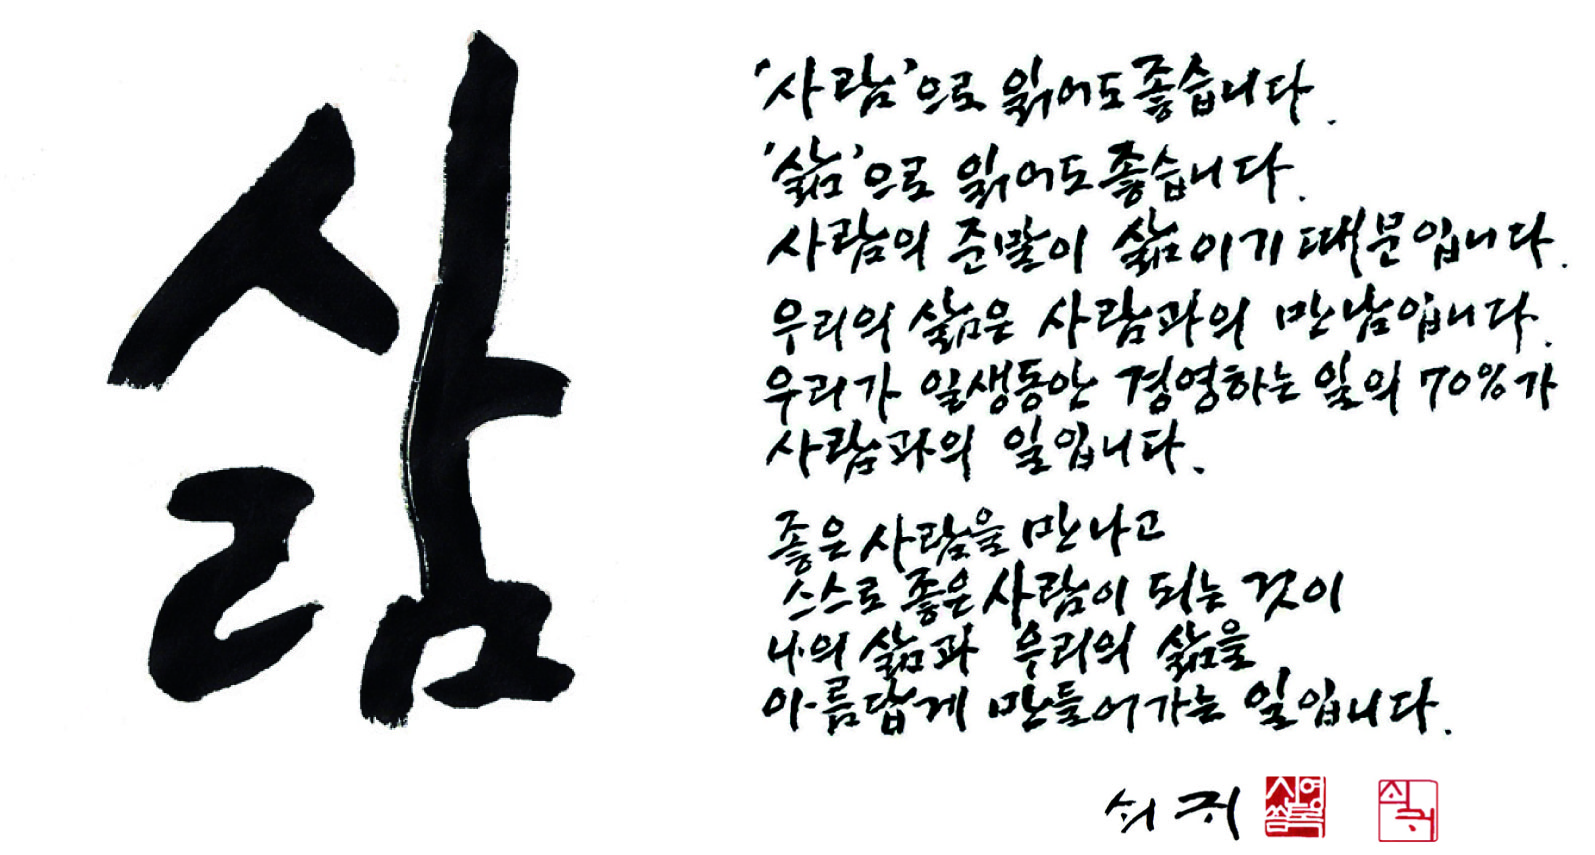 삶
'사람'으로 읽어도 좋습니다.
'삶'으로 읽어도 좋습니다.
사람의 준말이 삶이기 때문입니다.
우리의 삶은 사람과의 만남입니다.
우리가 일생동안 경영하는 일의 70%가
사람과의 일입니다.
좋은 사람을 만나고
스스로 좋은 사람이 되는 것이
나의 삶과 우리의 삶을
아름답게 만들어가는 일입니다.
쇠귀
신영복
쇠귀